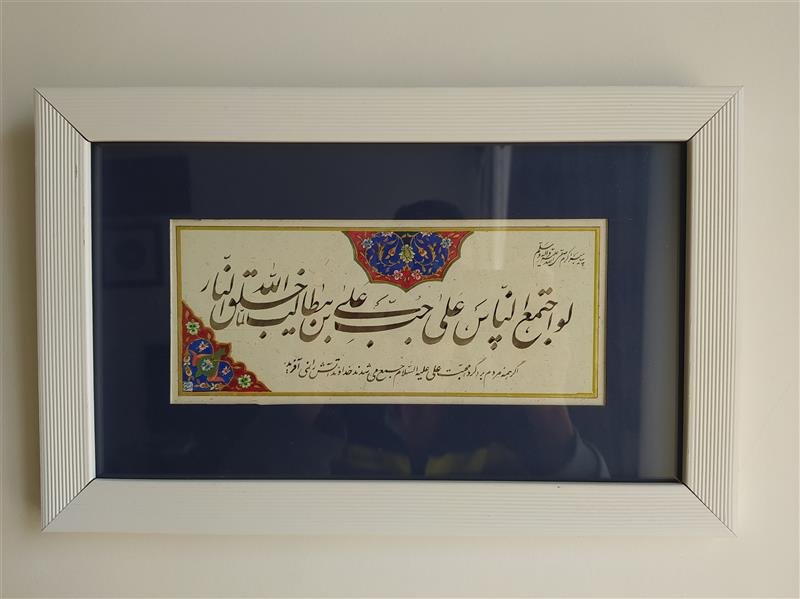 پیامبر اکرم صلی الله علیه و آله و سلم
لو اجتمع الناس علی حب علی بن ابیطالب لما خلق الله النار
اگر همه مردم بر گرد محبت علی علیه السلام جمع می شدند خداوند آتش را نمی آفرید